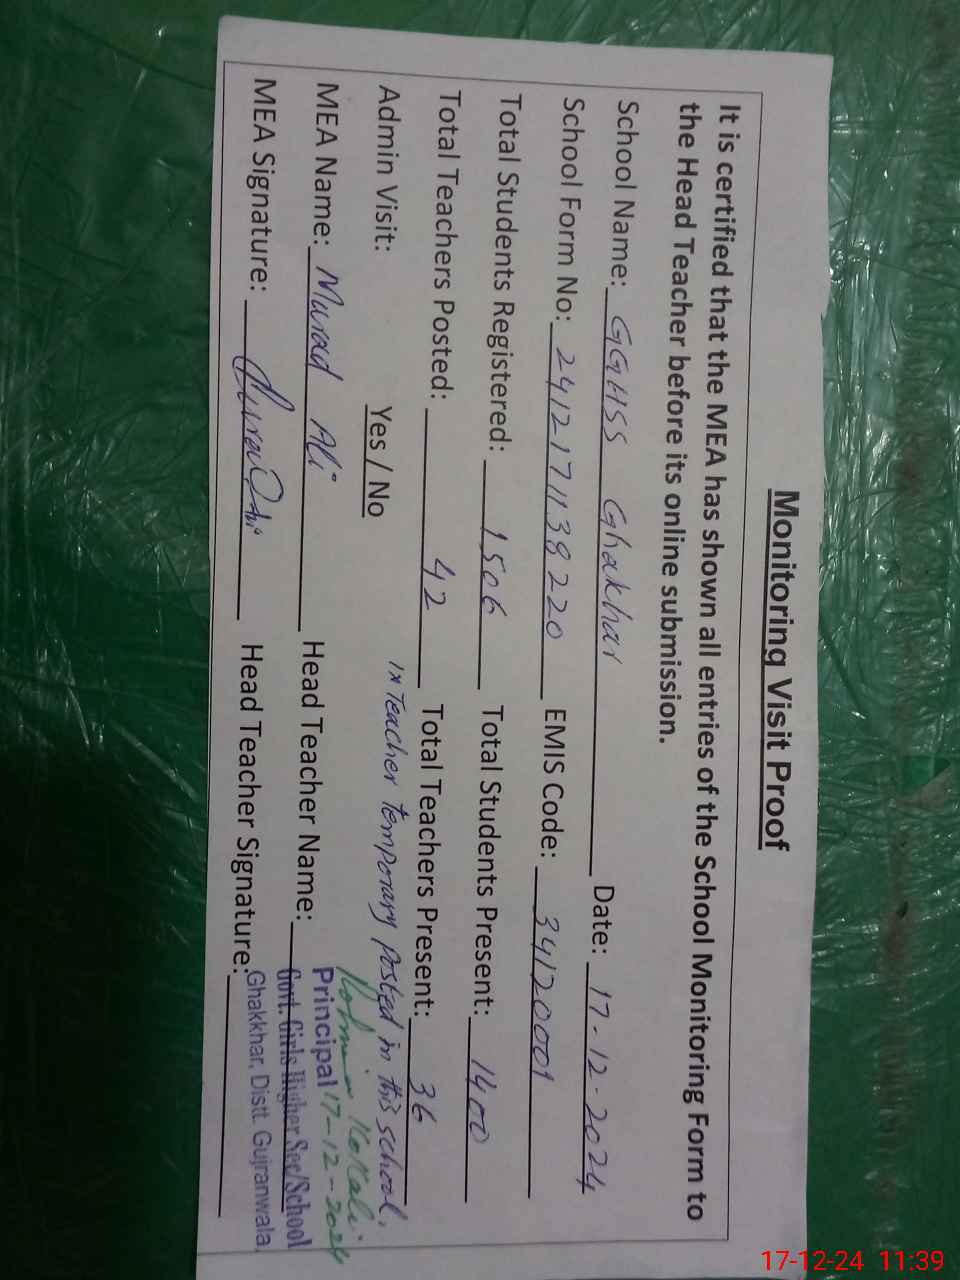 Monitoring Visit Proof
It is certified that the MEA has shown all entries of the School Monitoring Form to
the Head Teacher before its online submission.
School Name: GGHSS Ghakhar Date: 17-12-2024
School Form No: 2412171138220 EMIS Code: 34120001
Total Students Registered: 1506 Total Students Present: 1400
Total Teachers Posted: 42 Total Teachers Present: 36
1x Teacher temporary posted in this school.
Admin Visit: Yes / No
MEA Name: Murad Ali Head Teacher Name:
17-12-2024
Principal
Govt. Girls Higher Sec/School
Ghakkhar, Distt. Gujranwala.
MEA Signature: Head Teacher Signature:
17-12-24 11:39